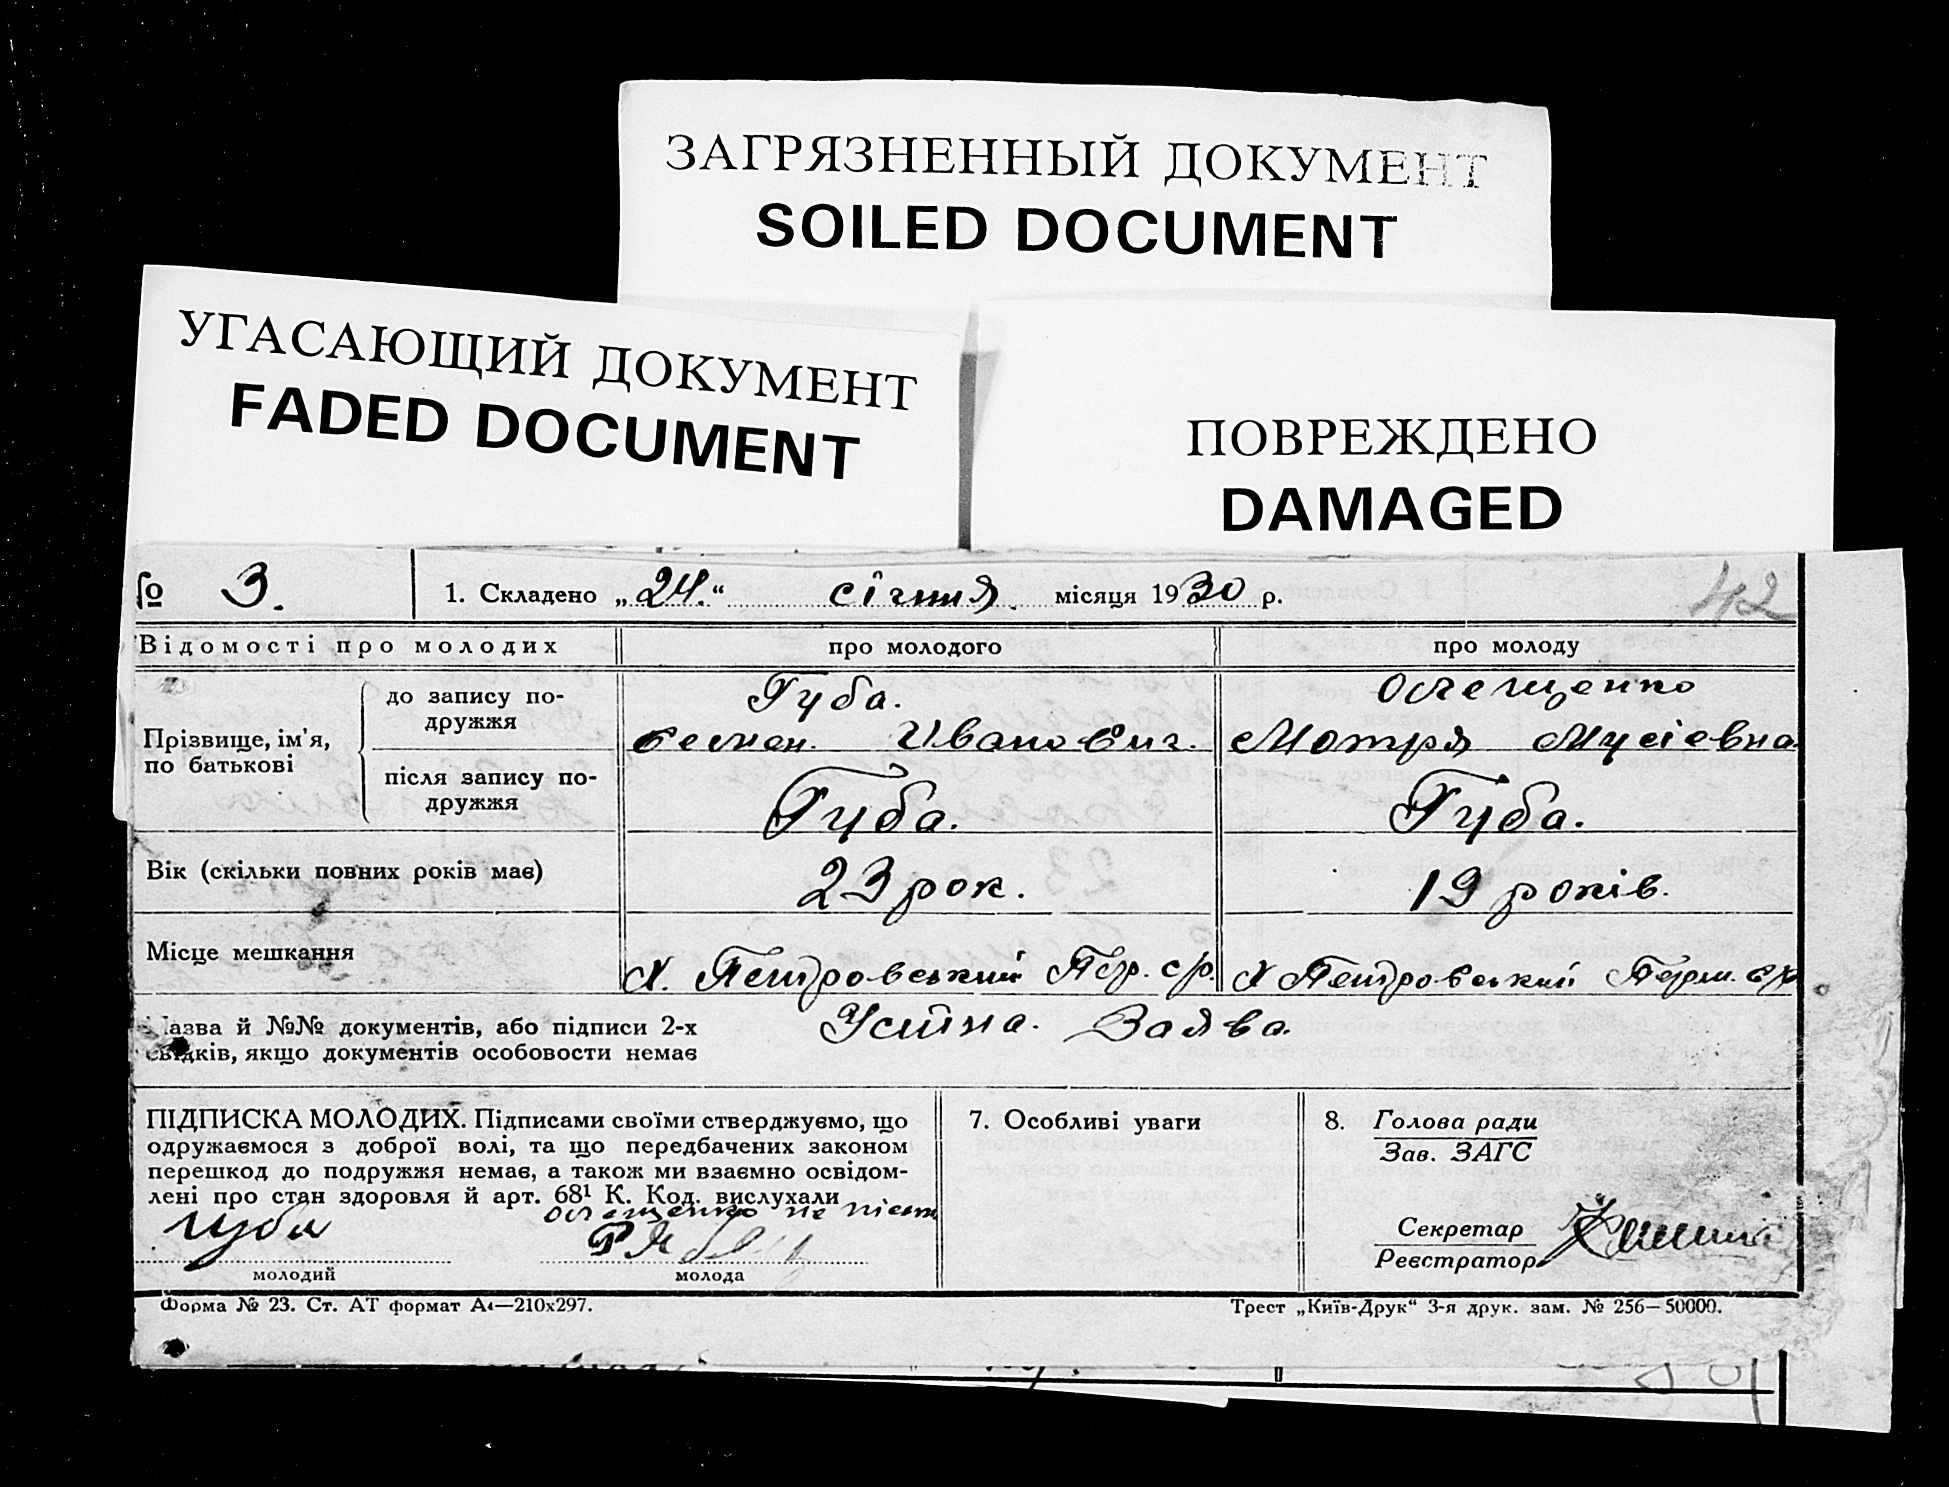 ЗАГРЯЗНЕННЫЙ ДОКУМЕНТ
SOILED DOCUMENT
УГАСАЮЩИЙ ДОКУМЕНТ
FADED DOCUMENT
ПОВРЕЖДЕНО
DAMAGED
№ 3. 1. Складено „24.“ січня місяця 1930 р. 42
Відомості про молодих про молодого про молоду
Прізвище, ім'я, по батькові
до запису подружжя
Губа.
Семен. Иванович.
Мотря Мусієвна
після запису подружжя
Губа. Губа.
Вік (скільки повних років має) 23 рок. 19 років.
Місце мешкання Х. Петровський Пер. с/р. Х Петровський с/р
Назва й №№ документів, або підписи 2-х Усття. Заява.
свідків, якщо документів особовости немає
ПІДПИСКА МОЛОДИХ. Підписами своїми стверджуємо, що
одружаємося з доброї волі, та що передбачених законом
перешкод до подружжя немає, а також ми взаємно освідом-
лені про стан здоровля й арт. 68¹ К. Код. вислухали
губа
молодий молода
7. Особливі уваги
8. Голова ради
Зав. ЗАГС
Секретар
Реєстратор
Форма № 23. Ст. АТ формат А4—210х297. Трест „Київ-Друк“ 3-я друк. зам. № 256—50000.